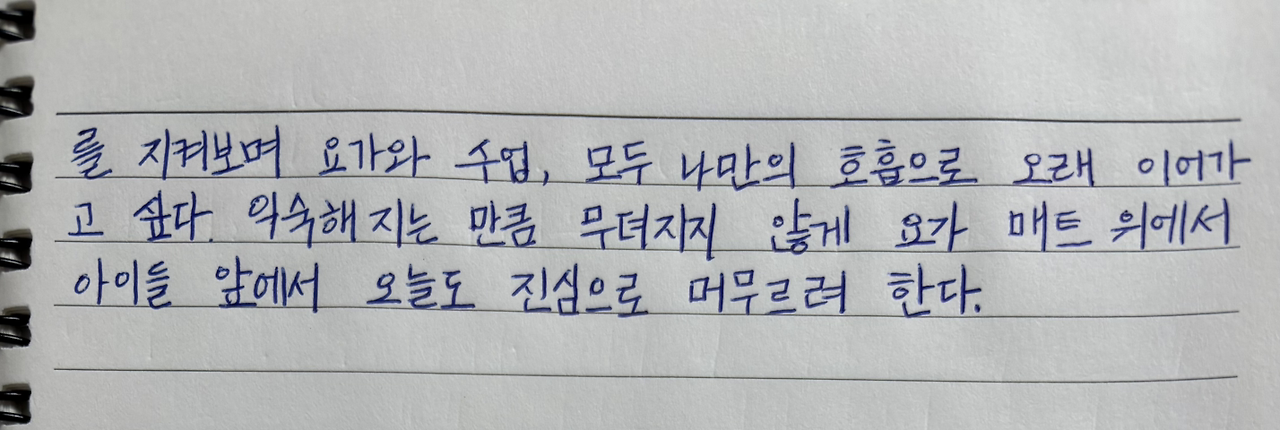 를 지켜보며 요가와 수업, 모두 나만의 호흡으로 오래 이어가
고 싶다. 익숙해지는 만큼 무뎌지지 않게 요가 매트 위에서
아이들 앞에서 오늘도 진심으로 머무르려 한다.